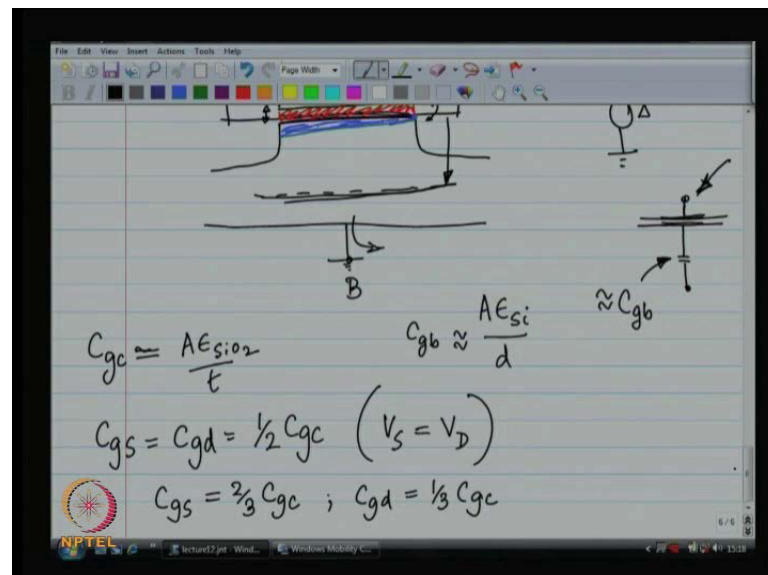 File Edit View Insert Actions Tools Help
Page Width
Δ
B
≈ Cgb
Cgc ≃ AϵSiO2 / t
Cgb ≈ AϵSi / d
Cgs = Cgd = 1/2 Cgc (VS = VD)
Cgs = 2/3 Cgc ; Cgd = 1/3 Cgc
6/6
NPTEL
lecture12.jnt - Wind...
Windows Mobility C...
15:18